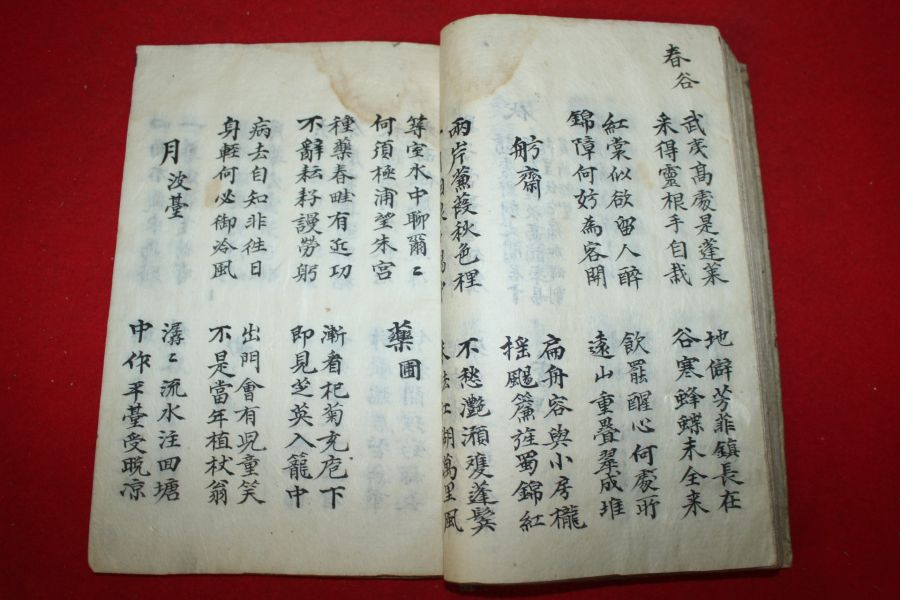 春谷
武茂高處是蓬萊
采得靈根手自栽
地僻芳菲鎮長在
谷寒蜂蝶未全来
紅棠似欲留人醉
錦障何妨為客開
飲罷醒心何處所
遠山重疊翠成堆
舫齋
扁舟容與小房櫳
搖颺簾旌蜀錦紅
兩岸蒹葭秋色裡
不愁灔澦㩴蓬鬂
江湖萬里風
等室水中聊爾〻
何須極浦望朱宮
藥圃
種藥春畦有近功
不辭耘耔謾勞躬
漸看杞菊充庖下
即見芝英入籠中
病去自知非往日
身輕何必御泠風
出門會有兒童笑
不是當年植杖翁
月波臺
潺〻流水注回塘
中作平臺受晩凉